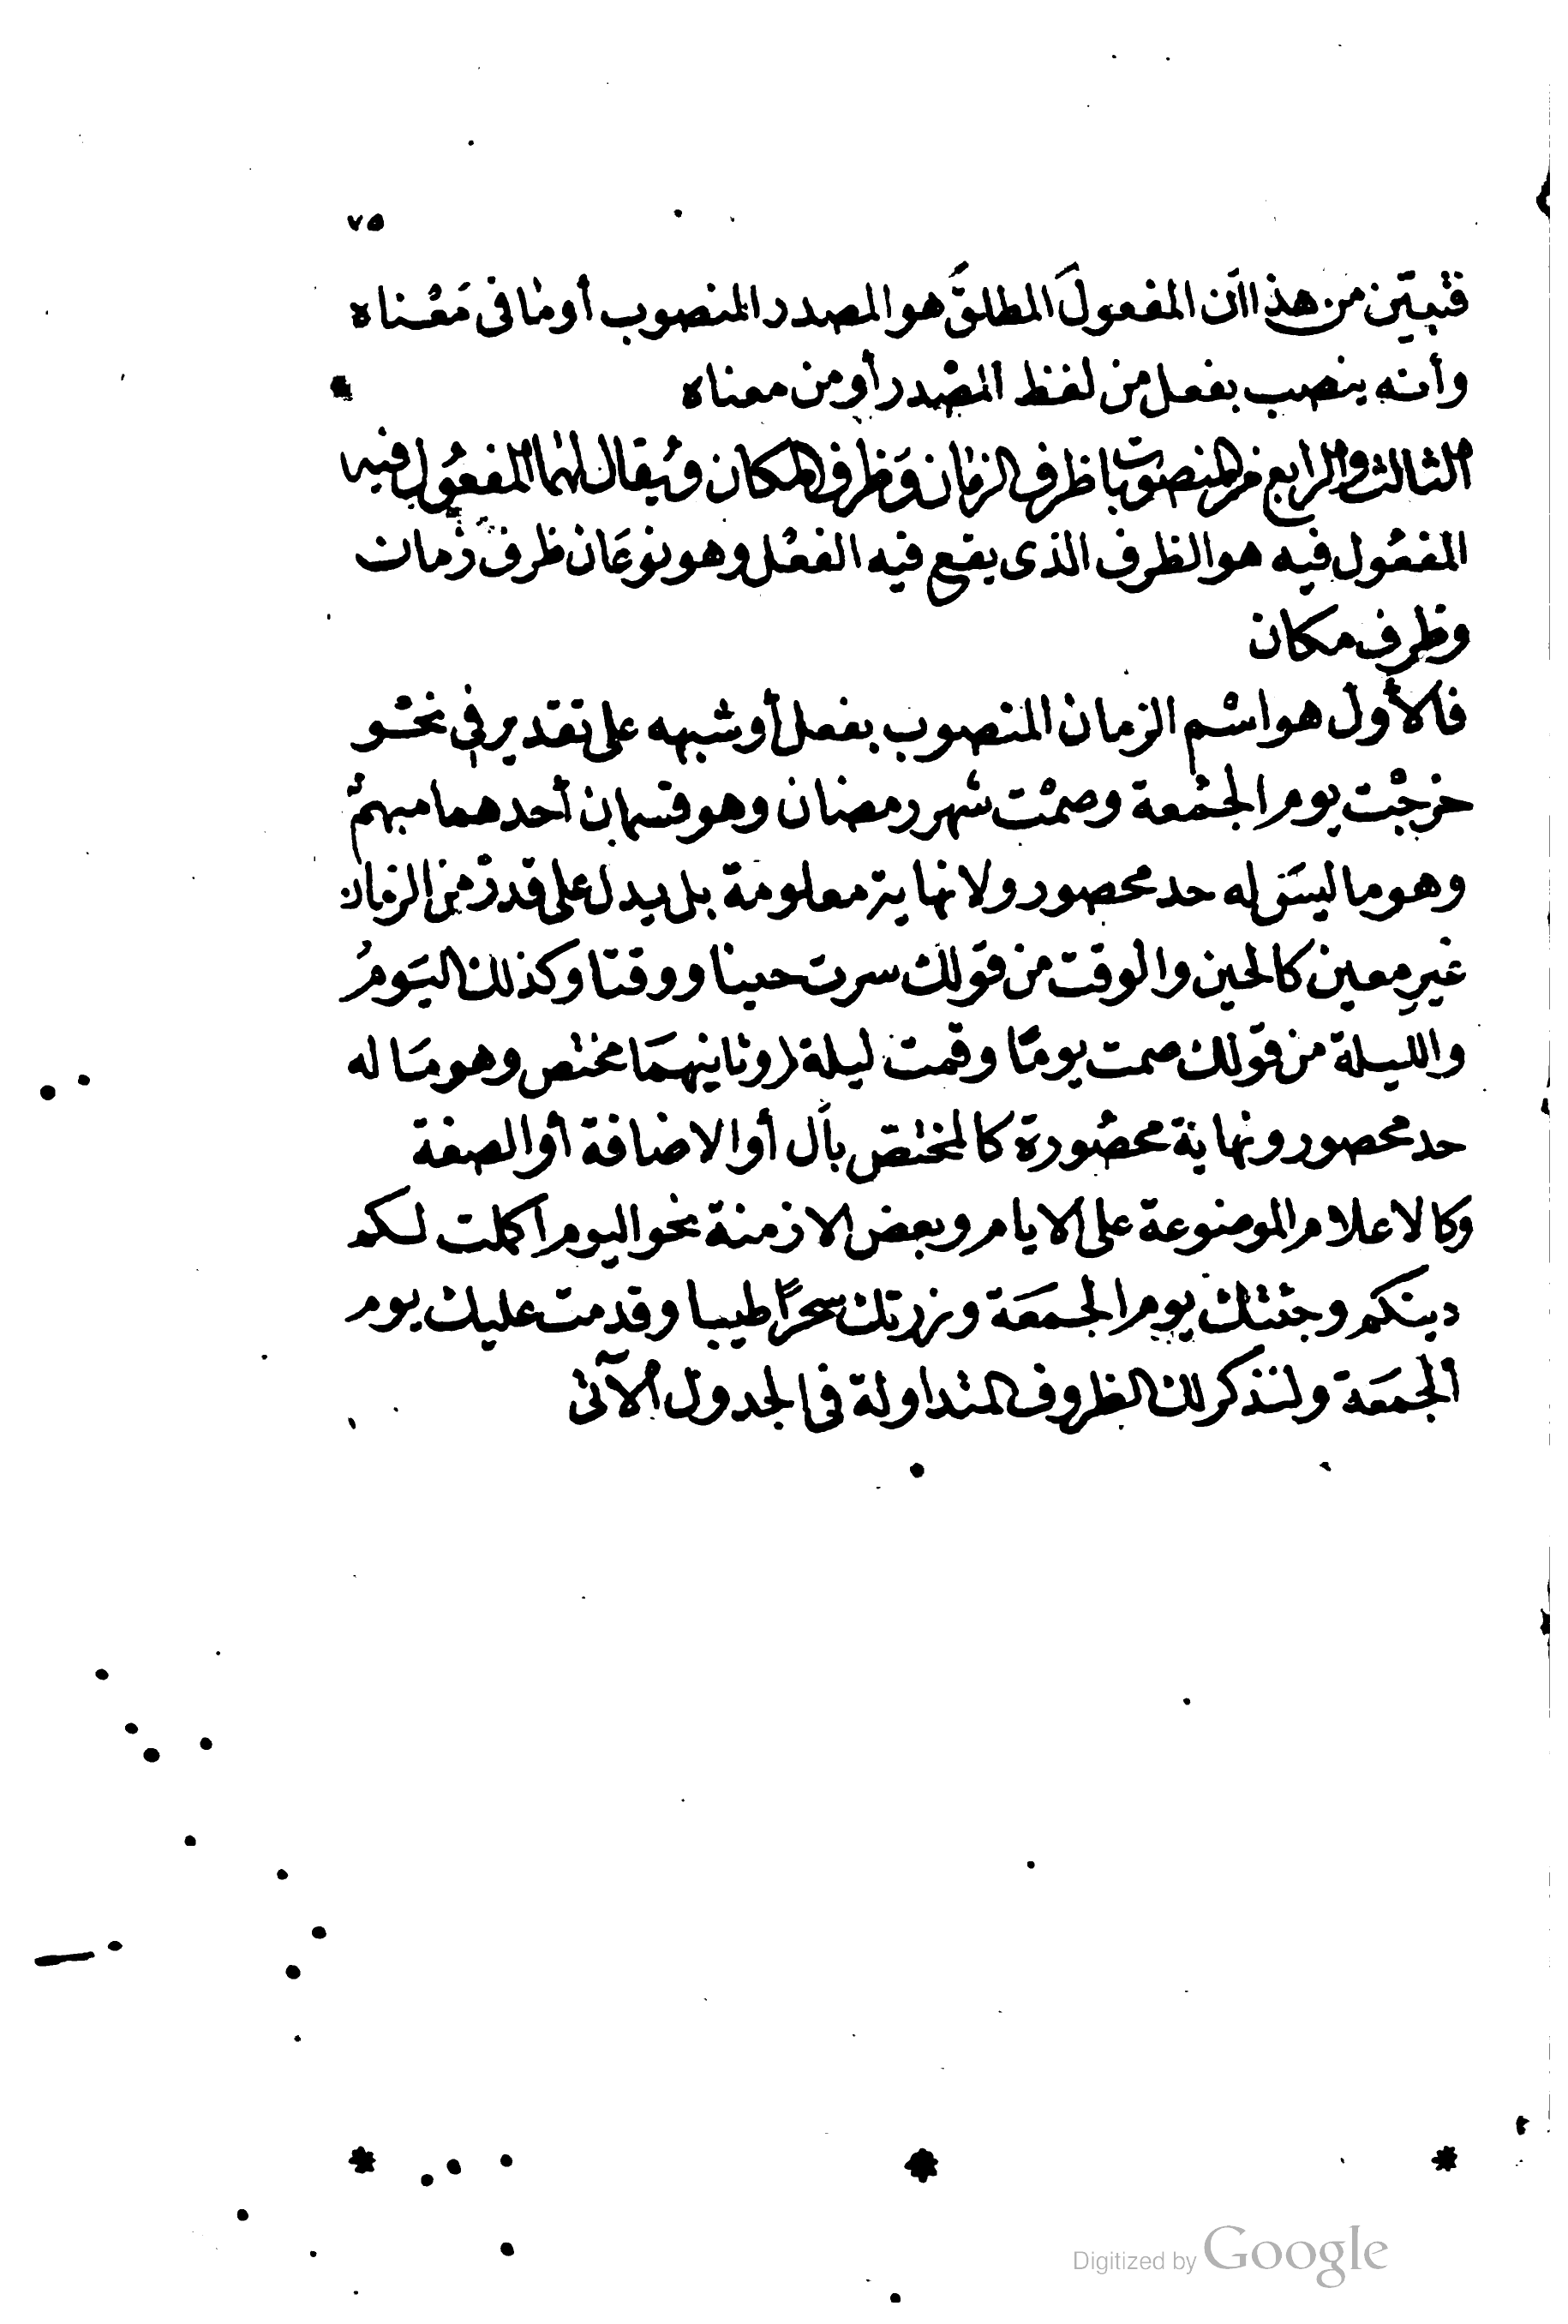 ٧٥
فتبيّن من هذا أن المفعولَ المطلقَ هو المصدر المنصوب أو ما فى مَعْناه
وأنه ينصب بفعل من لفظ المصْدر أو من معناه
الثالث والرابع من المنصوبات ظرف الزمان وَظرف المكان وَيقال لهما المفعُول فيه
المفعُول فيه هو الظرف الذى يقع فيه الفعْل وهو نوعَان ظرف زمان
وظرف مكان
فالأول هو اسْم الزمان المنصوب بفعل أو شبهه على تقدير فى نحْو
خرجْت يوم الجمْعة وصمْت شهر رمضان وهو قسمان أحدهما مبهمٌ
وهو ما ليسَ له حد محصور ولا نهاية معلومة بل يدل على قدرٌ من الزمان
غيرِ معين كالحين والوقت من قولك سرت حينا ووقتا وكذلك اليَومُ
والليلة من قولك صمت يومًا وقمت ليلة (وثانيهمَا مختص وهو مَا له
حد محصور ونهاية محصُورة كالمختصّ بأل أو الاضافة أو الصفة
وكالاعلام الموضوعة على الايام وبعض الازمنة نحو اليوم اكملت لكم
دينكم وجئتك يوم الجمَعَة وزرتك سحرًا طيبا وقدمت عليك يوم
الجمَعَة ولنذكر لك الظروف المتداولة فى الجدول الآتى
* * *
Digitized by Google